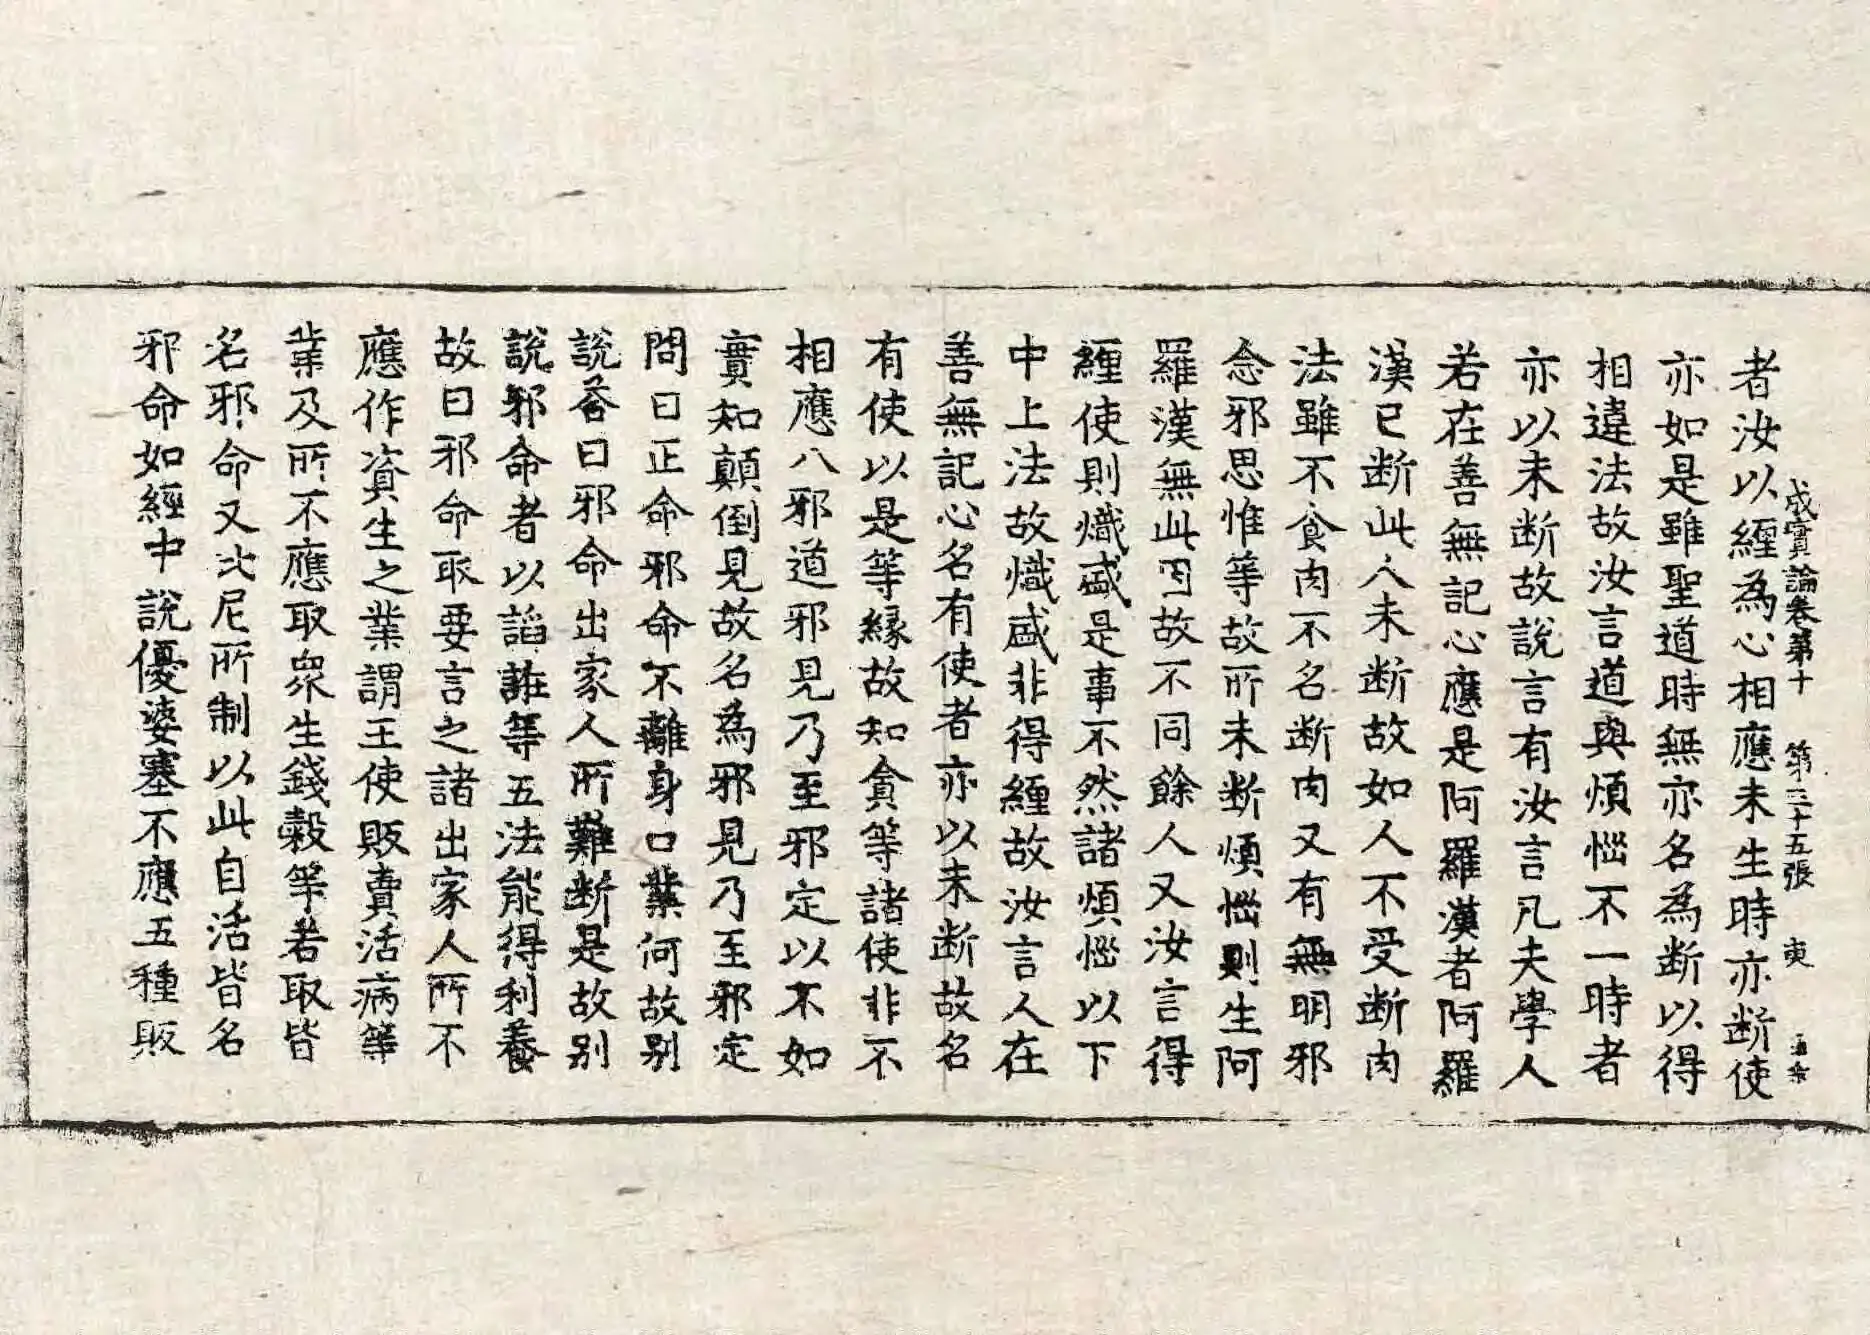 成實論卷第十　第三十五張　東
者汝以纏為心相應未生時亦断使
亦如是雖聖道時無亦名為断以得
相違法故汝言道與煩惱不一時者
亦以未断故說言有汝言凡夫學人
若在善無記心應是阿羅漢者阿羅
漢已断此人未断故如人不受断肉
法雖不食肉不名断肉又有無明邪
念邪思惟等故所未断煩惱則生阿
羅漢無此因故不同餘人又汝言得
纏使則熾盛是事不然諸煩惱以下
中上法故熾盛非得纏故汝言人在
善無記心名有使者亦以未断故名
有使以是等緣故知貪等諸使非不
相應八邪道邪見乃至邪定以不如
實知顛倒見故名為邪見乃至邪定
問曰正命邪命不離身口業何故别
說荅曰邪命出家人所難断是故别
說邪命者以諂誑等五法能得利養
故曰邪命取要言之諸出家人所不
應作資生之業謂王使販賣活病等
業及所不應取衆生錢穀等若取皆
名邪命又比尼所制以此自活皆名
邪命如經中說優婆塞不應五種販